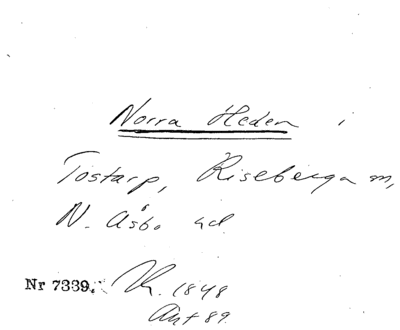 Norra Heden i
Tostarp, Riseberga sn,
N. Åsbo hd
Nr 7339. Kr. 1848
Ant 89.